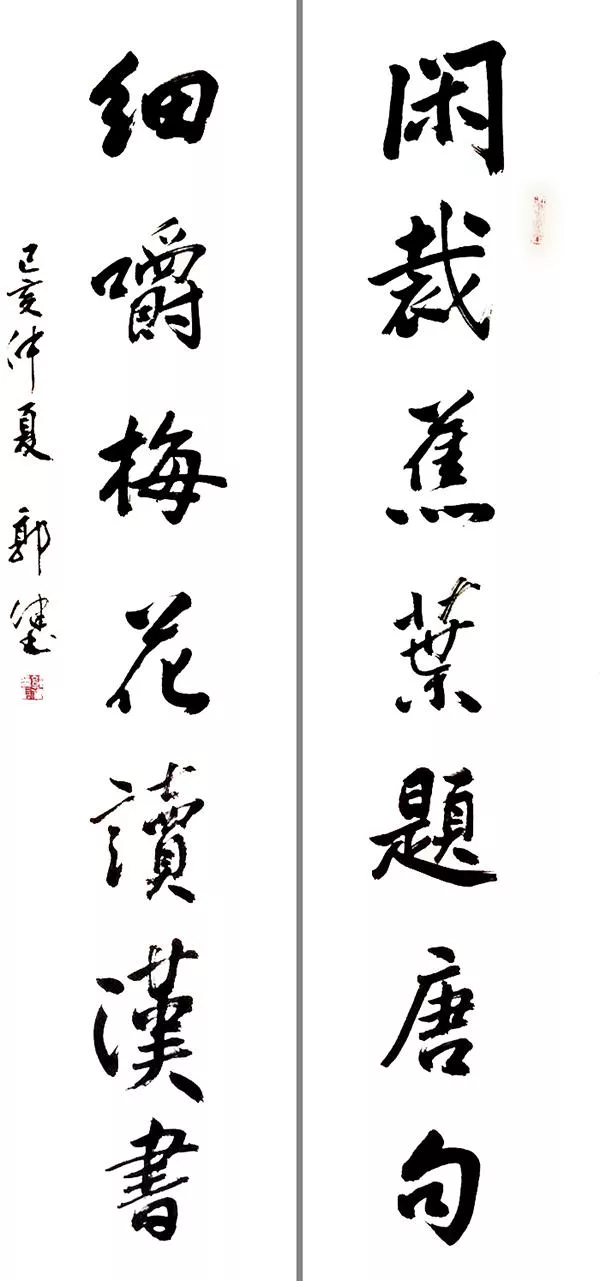 闲裁蕉葉題唐句
細嚼梅花讀漢書
己亥仲夏 郭健